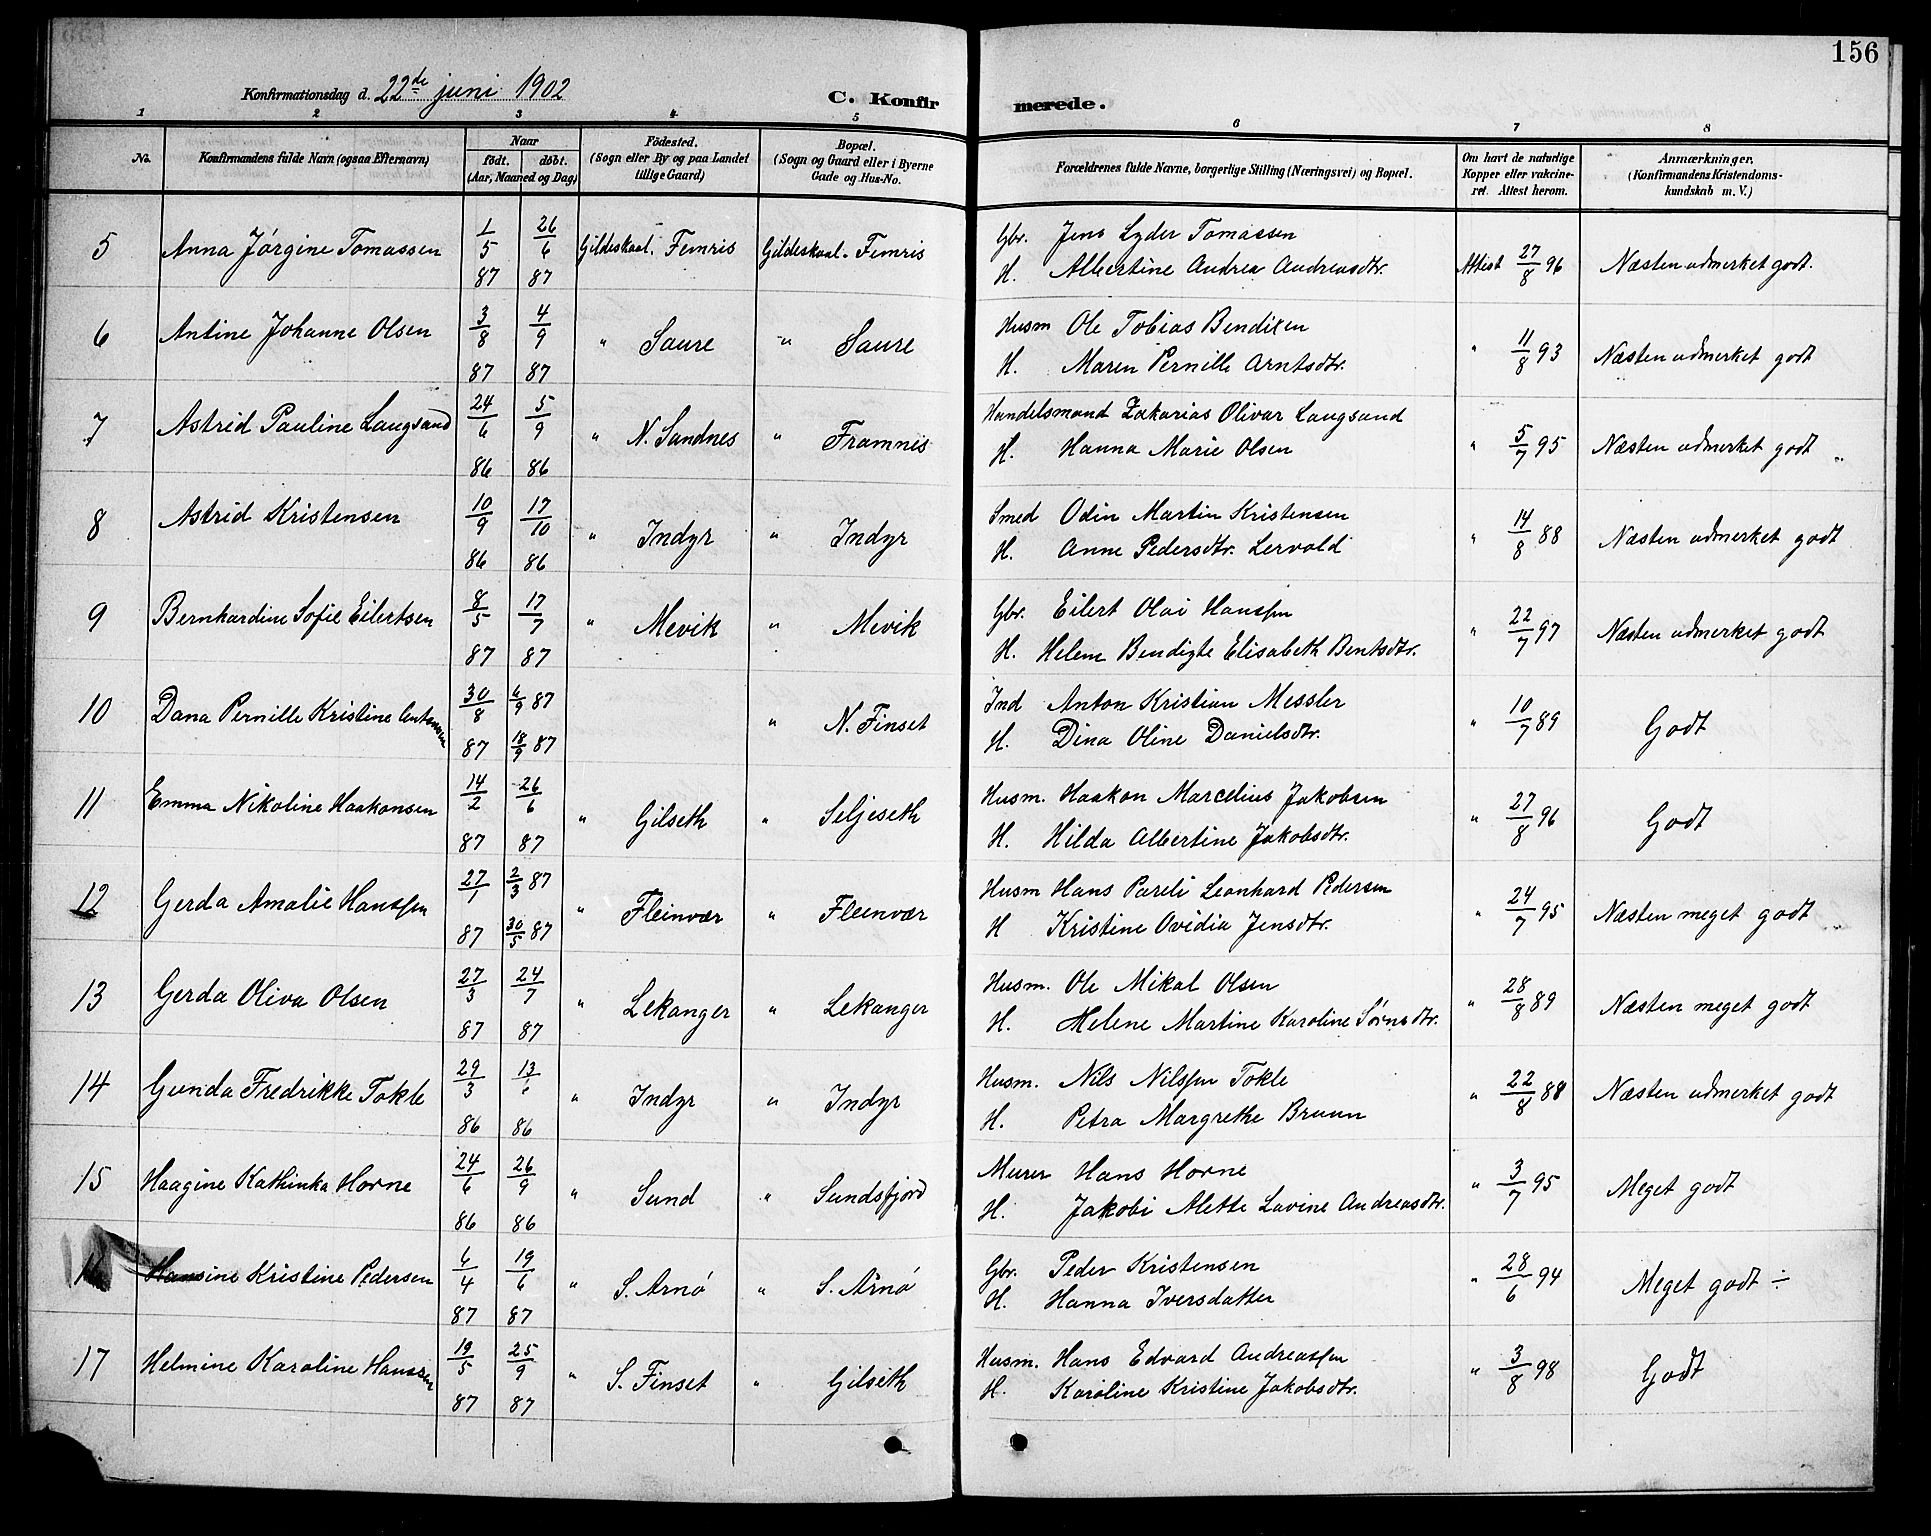 156
Konfirmationsdag d. 22de juni 1902
C. Konfirmerede.
1 2 3 4 5 6 7 8
No. | Konfirmandens fulde Navn (ogsaa Efternavn) | Naar født. døbt. (Aar, Maaned og Dag) | Fødested. (Sogn eller By og paa Landet tillige Gaard) | Bopæl. (Sogn og Gaard eller i Byerne Gade og Hus-No. | Forældrenes fulde Navne, borgerlige Stilling (Næringsvei) og Bopæl. | Om havt de naturlige Kopper eller vakcineret. Attest herom. | Anmærkninger. (Konfirmandens Kristendomskundskab m. V.)
5 Anna Jørgine Tomassen 1/5 87 26/6 87 Gildeskaal. Femris Gildeskaal. Femris Gbr. Jens Lyder Tomassen
H. Albertine Andrea Andreasdtr. Attest 27/8 96 Næsten udmerket godt.
6 Antine Johanne Olsen 3/8 87 4/9 87 " Saure " Saure Husm Ole Tobias Bendixen
H. Maren Pernille Arntsdtr. " 11/8 93 Næsten udmerket godt
7 Astrid Pauline Langsand 24/6 86 5/9 86 " N. Sandnes " Framnis Handelsmand Zakarias Olivar Langsand
H. Hanna Marie Olsen " 5/7 95 Næsten udmerket godt
8 Astrid Kristensen 10/9 86 17/10 86 " Indyr " Indyr Smed Odin Martin Kristensen
H. Anne Pedersdtr. Lervold " 14/8 88 Næsten udmerket godt
9 Bernhardine Sofie Eilertsen 8/5 87 17/7 87 " Mevik " Mevik Gbr. Eilert Olai Hanssen
H. Helene Bendigte Elisabeth Bentsdtr. " 22/7 97 Næsten udmerket godt
10 Dana Pernille Kristine Antonsen 30/8 87 4/9 87 18/9 87 " N. Finset Ind Anton Kristian Messler
H. Dina Oline Danielsdtr. " 10/7 89 Godt
11 Emma Nikoline Haakonsen 14/2 87 26/6 87 " Gilseth " Seljeseth Husm. Haakon Marcelius Jakobsen
H. Hilda Albertine Jakobsdtr. " 27/8 96 Godt
12 Gerda Amalie Hanssen 27/1 87 2/3 87 30/5 87 " Fleinvær " Fleinvær Husm Hans Pareli Leonhard Pedersen
H Kristine Ovidia Jensdtr. " 24/7 95 Næsten meget godt
13 Gerda Oliva Olsen 27/3 87 24/7 87 " Lekanger " Lekanger Husm. Ole Mikal Olsen
H. Helene Martine Karoline Sørnsdtr. " 28/8 89 Næsten meget godt
14 Gunda Fredrikke Tokle 29/3 86 13/ 86 " Indyr " Indyr Husm. Nils Nilssen Tokle
H. Petra Margrethe Bruun " 22/8 88 Næsten udmerket godt
15 Haagine Kathinka Horne 24/6 86 26/9 86 " Sund " Sundsfjord Murer Hans Horne
H. Jakobi Alette Lavine Andreasdtr. " 3/7 95 Meget godt
16 Hansine Kristine Pedersen 4/4 87 19/6 87 " S. Arnø " S. Arnø Gbr. Peder Kristensen
H. Hanna Iversdatter " 28/6 94 Meget godt ÷
17 Helmine Karoline Hanssen 19/5 87 25/9 87 " S. Finset " Gilseth Husm. Hans Edvard Andreassen
H. Karoline Kristine Jakobsdtr. " 3/8 98 Godt